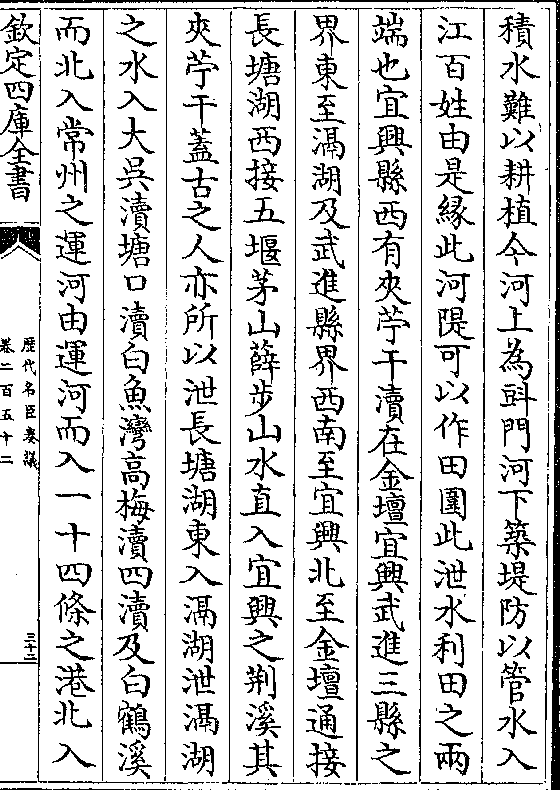 積水難以耕植今河上為㪷門河下築堤防以管水入
江百姓由是縁此河隄可以作田圍此泄水利田之兩
端也宜興縣西有夾苧干瀆在金壇宜興武進三縣之
界東至滆湖及武進縣界西南至宜興北至金壇通接
長塘湖西接五堰茅山薛步山水直入宜興之荆溪其
夾苧干蓋古之人亦所以泄長塘湖東入滆湖泄滆湖
之水入大吳瀆塘口瀆白魚灣高梅瀆四瀆及白鶴溪
而北入常州之運河由運河而入一十四條之港北入
欽定四庫全書
歴代名臣奏議
卷二百五十二
三十三